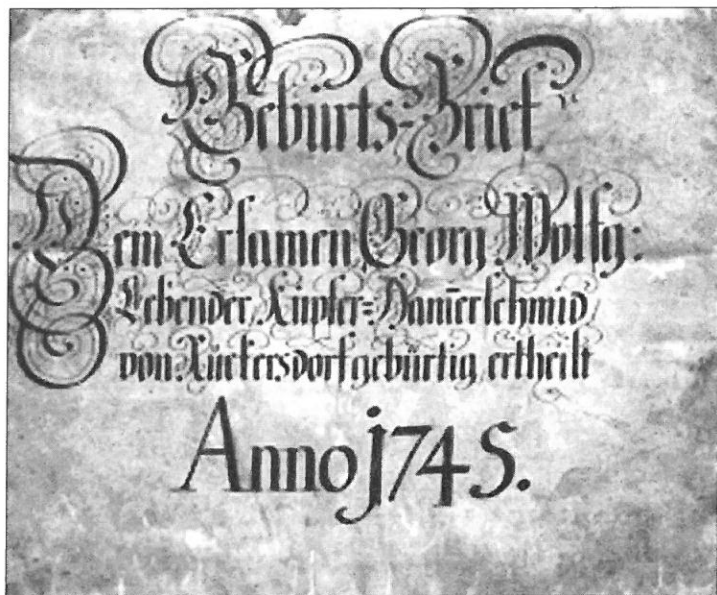 Geburts-Brief
Dem Ersamen Georg Wolfg:
Lebender, Kupfer=Ham̄erschmid,
von Rückersdorf gebürtig ertheilt
Anno j745.